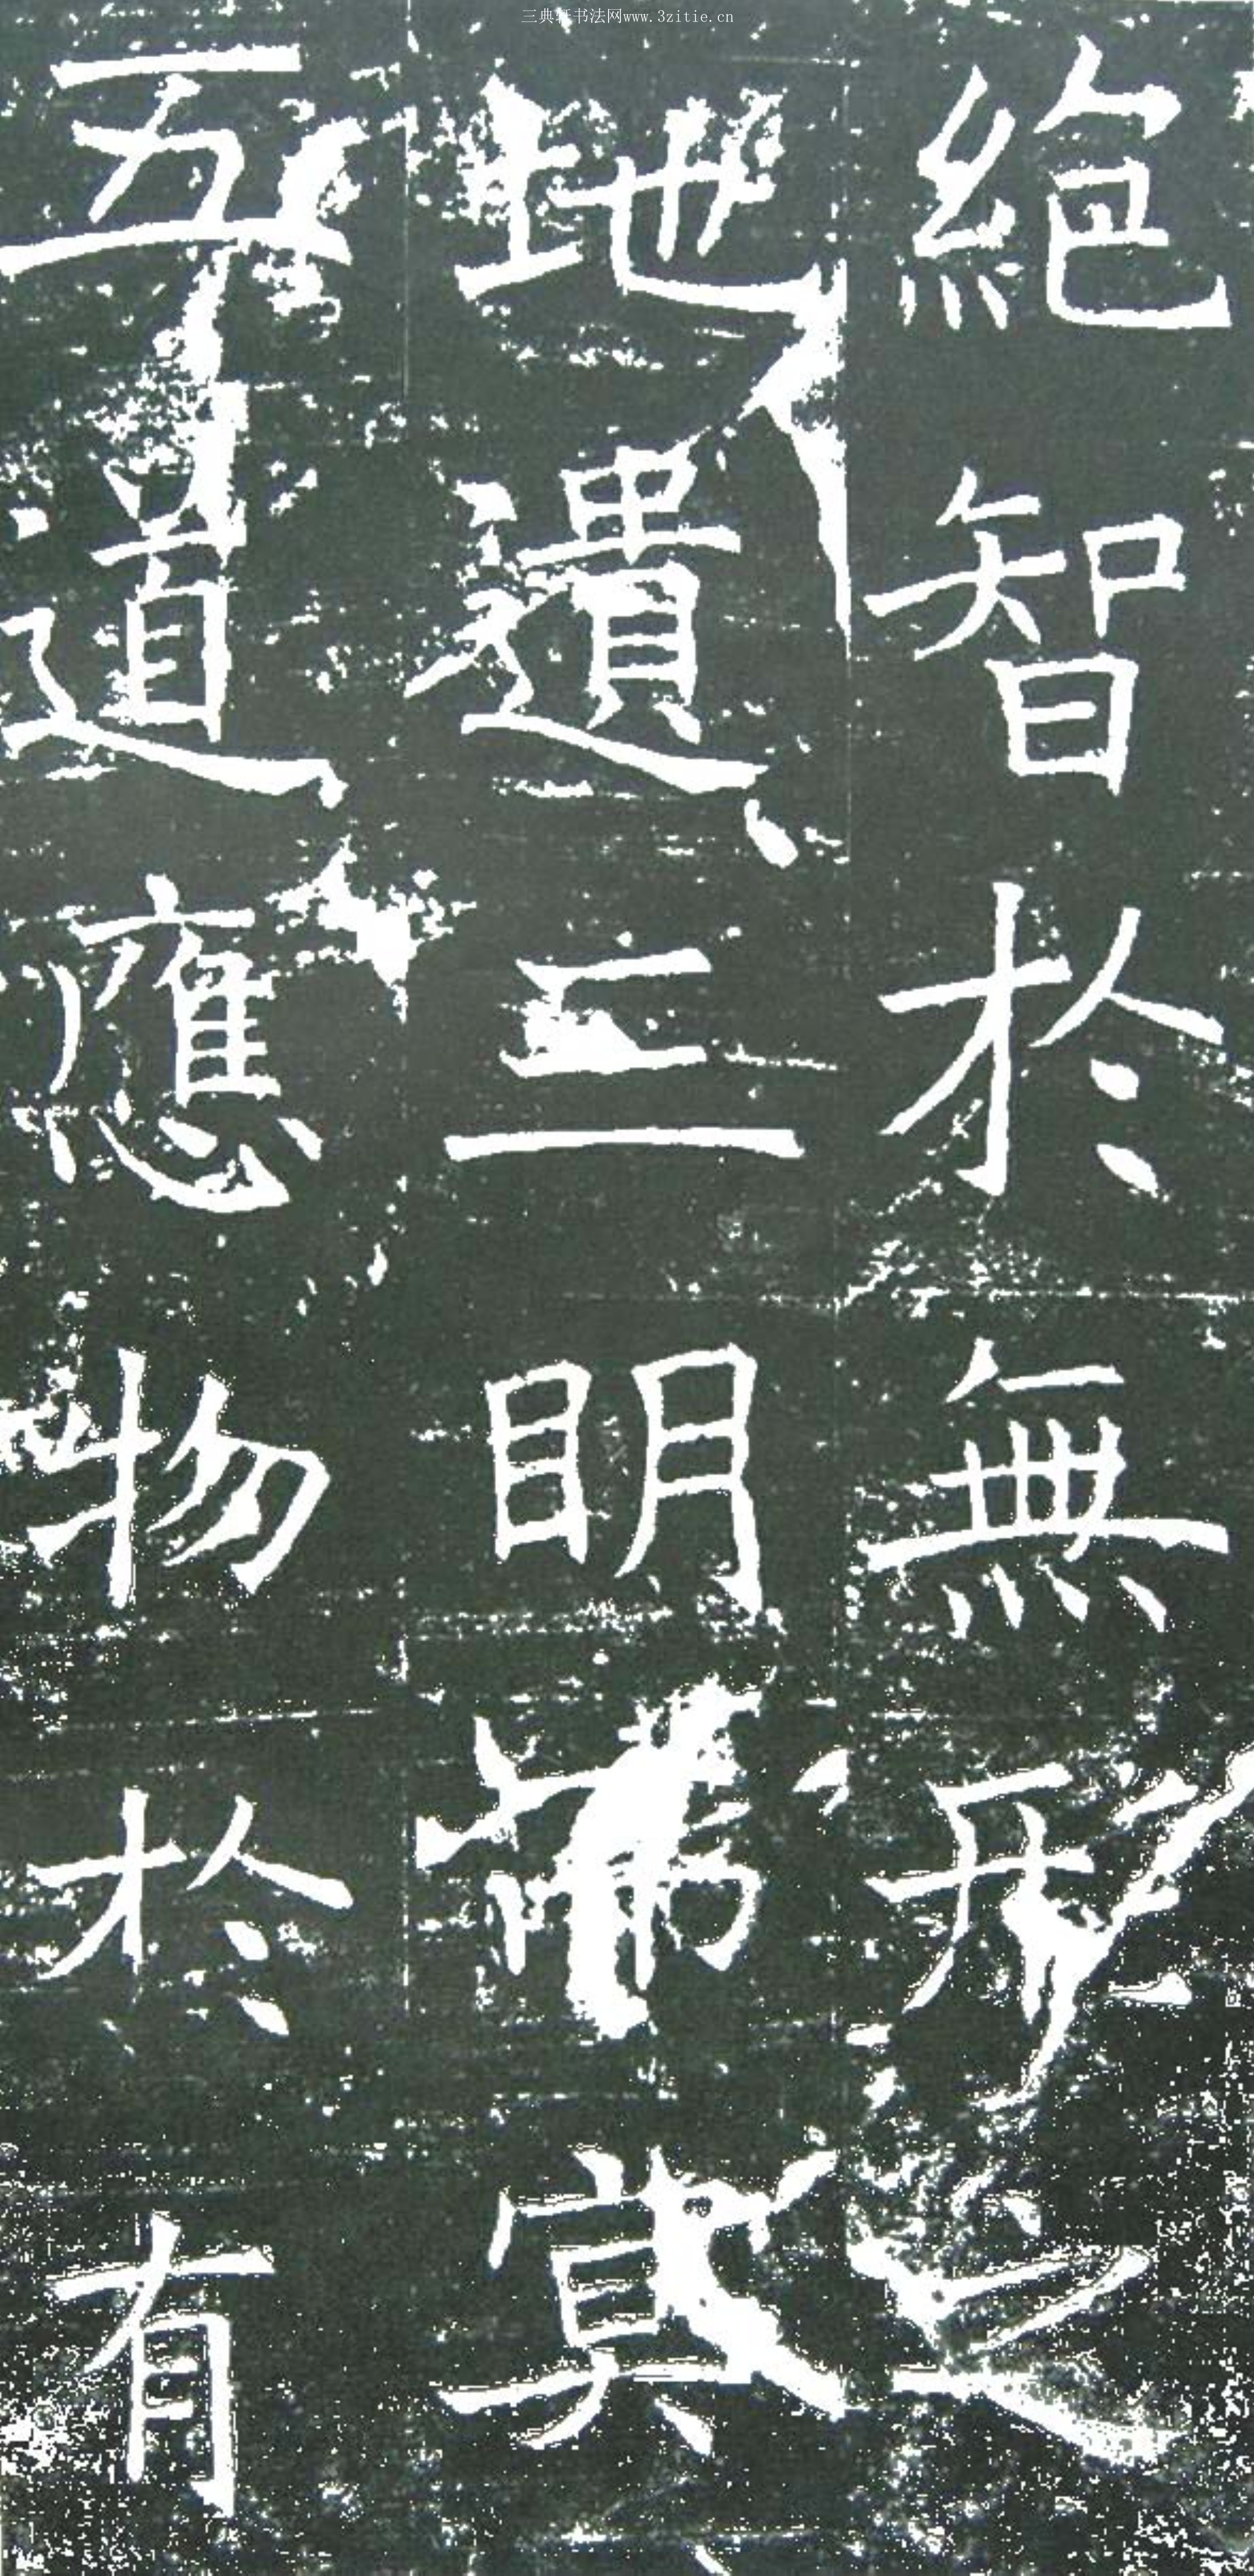 三典轩书法网www.3zitie.cn
絶智於無形之
地遺三眀冥
五道應物於有